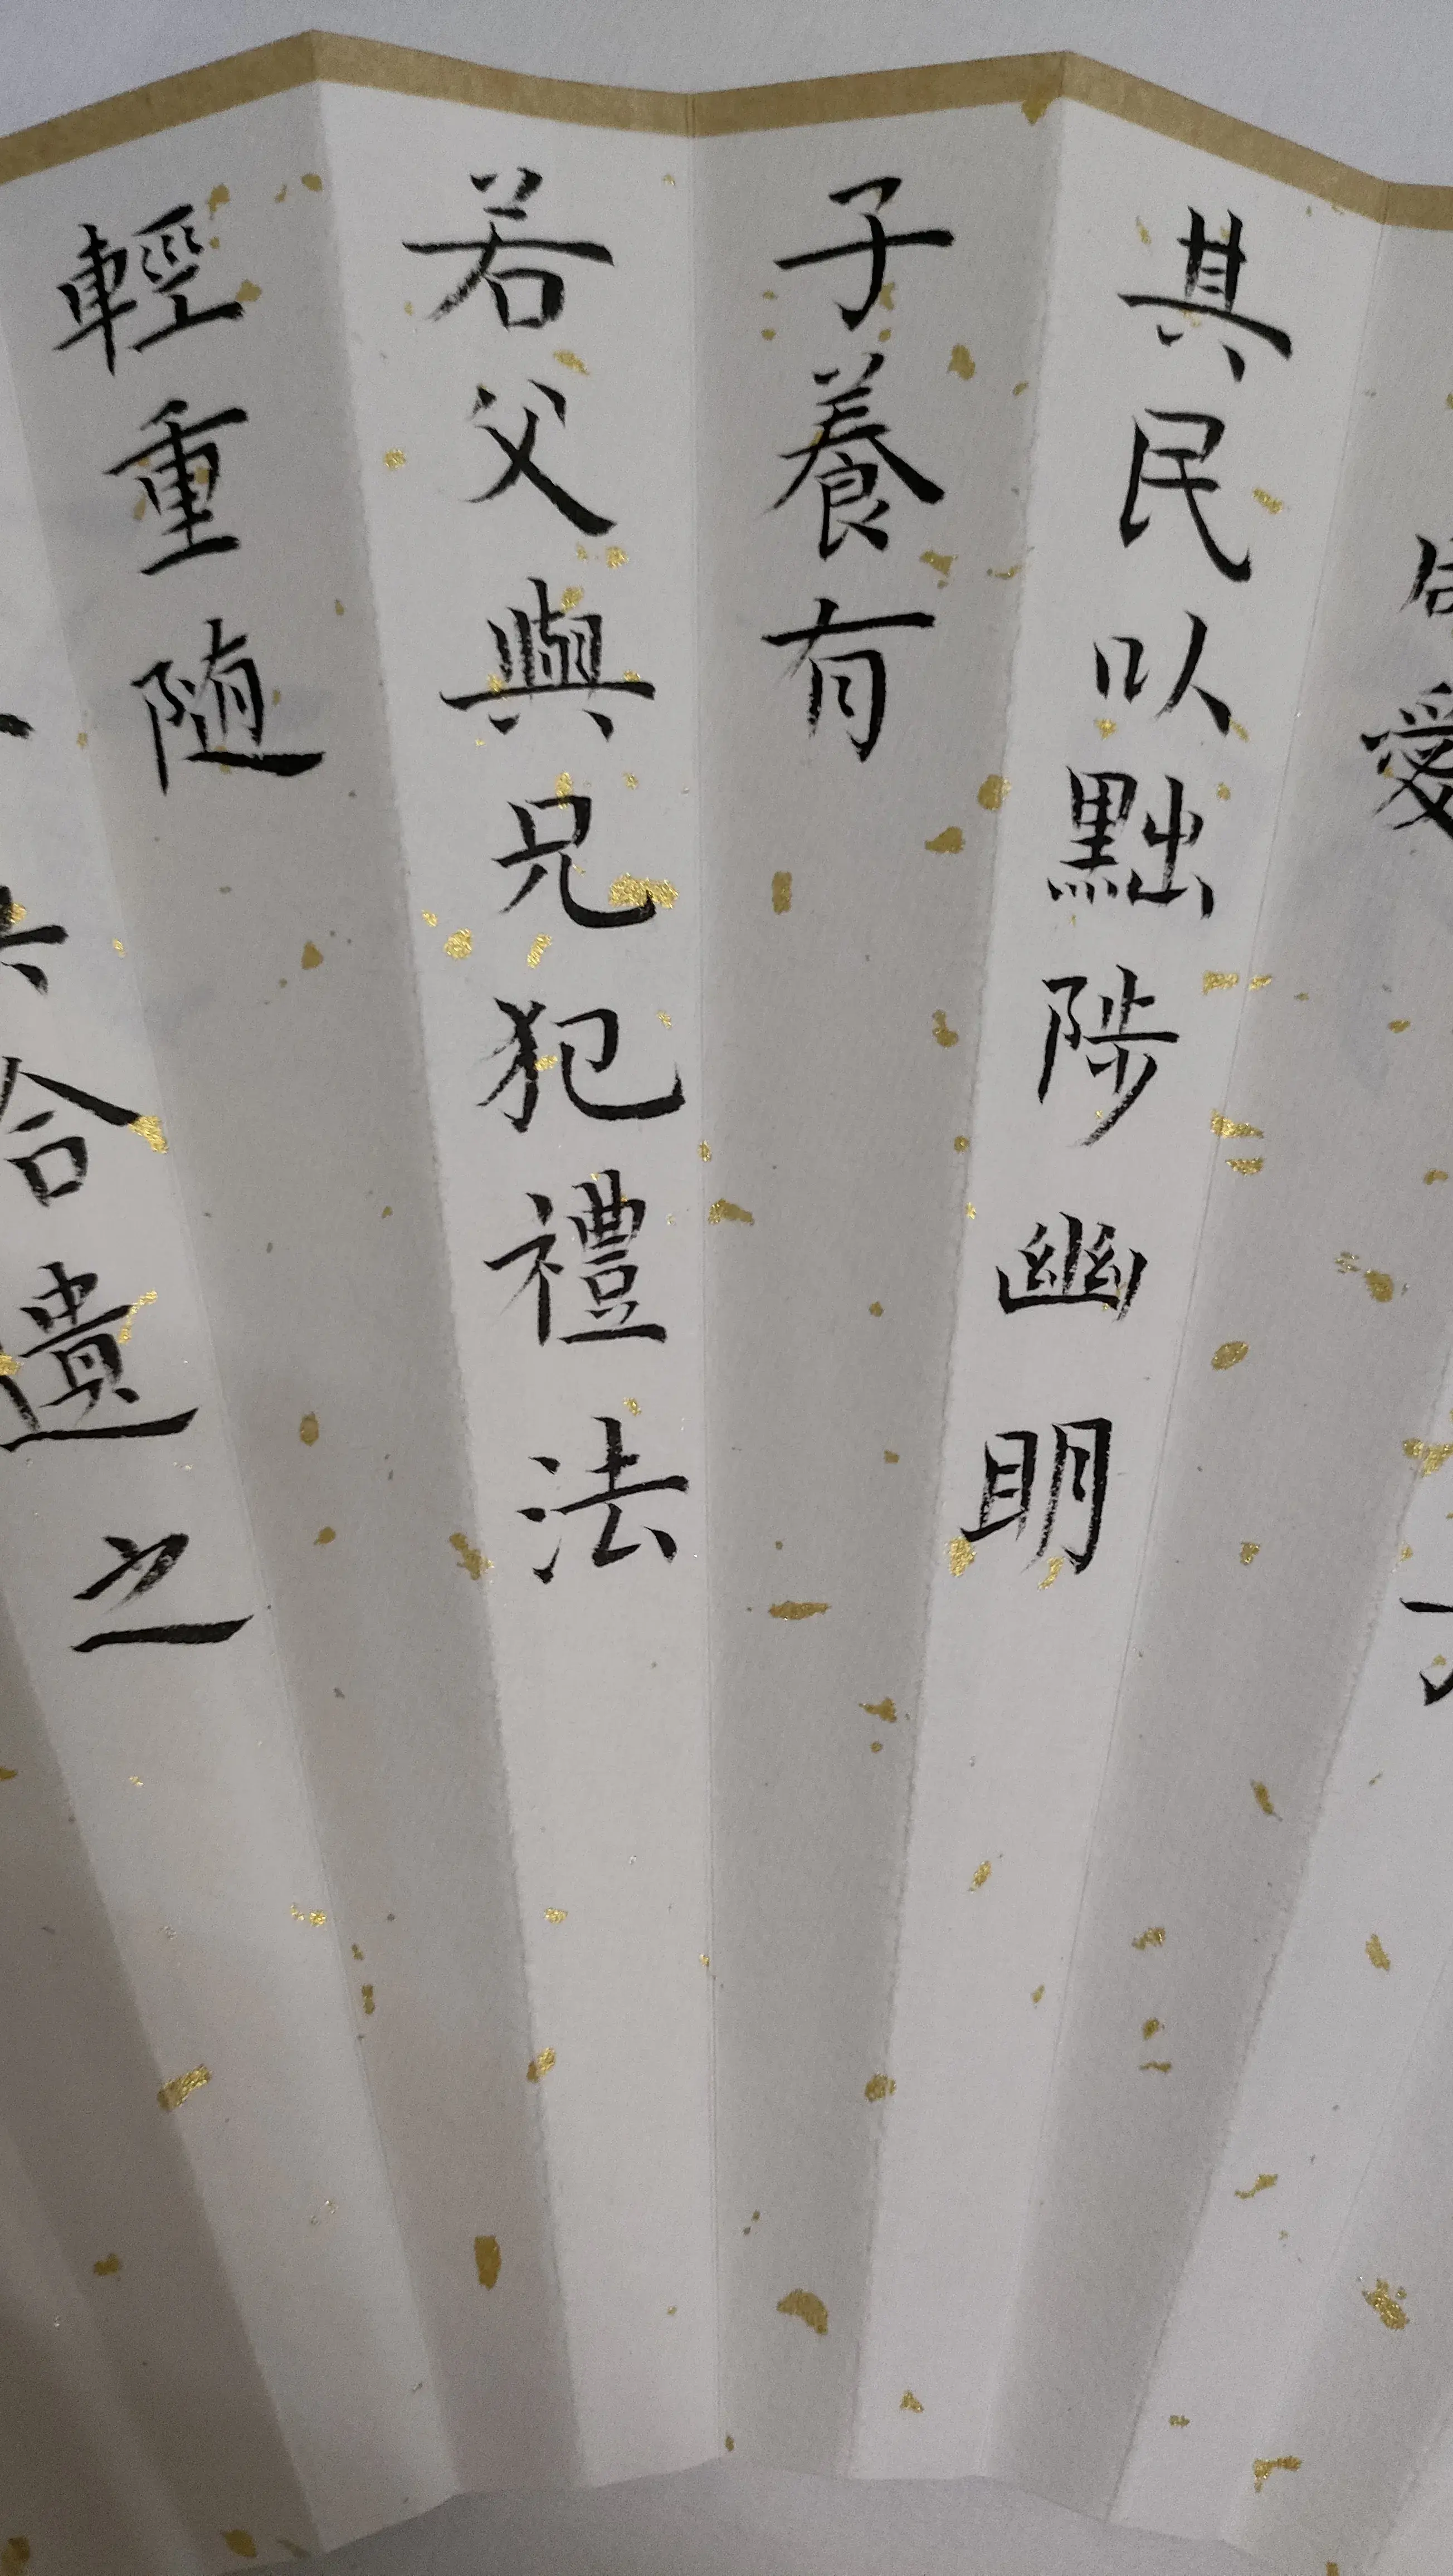 愛
其民以黜陟幽明
子養有
若父與兄犯禮法
輕重隨
合遺之